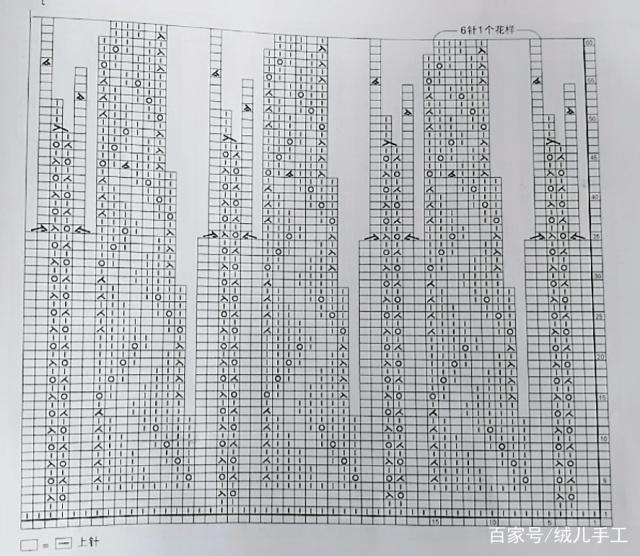 6针1个花样
60
55
50
45
40
35
30
25
20
15
10
5
15 10 5 1
□=⊟上针
百家号/绒儿手工